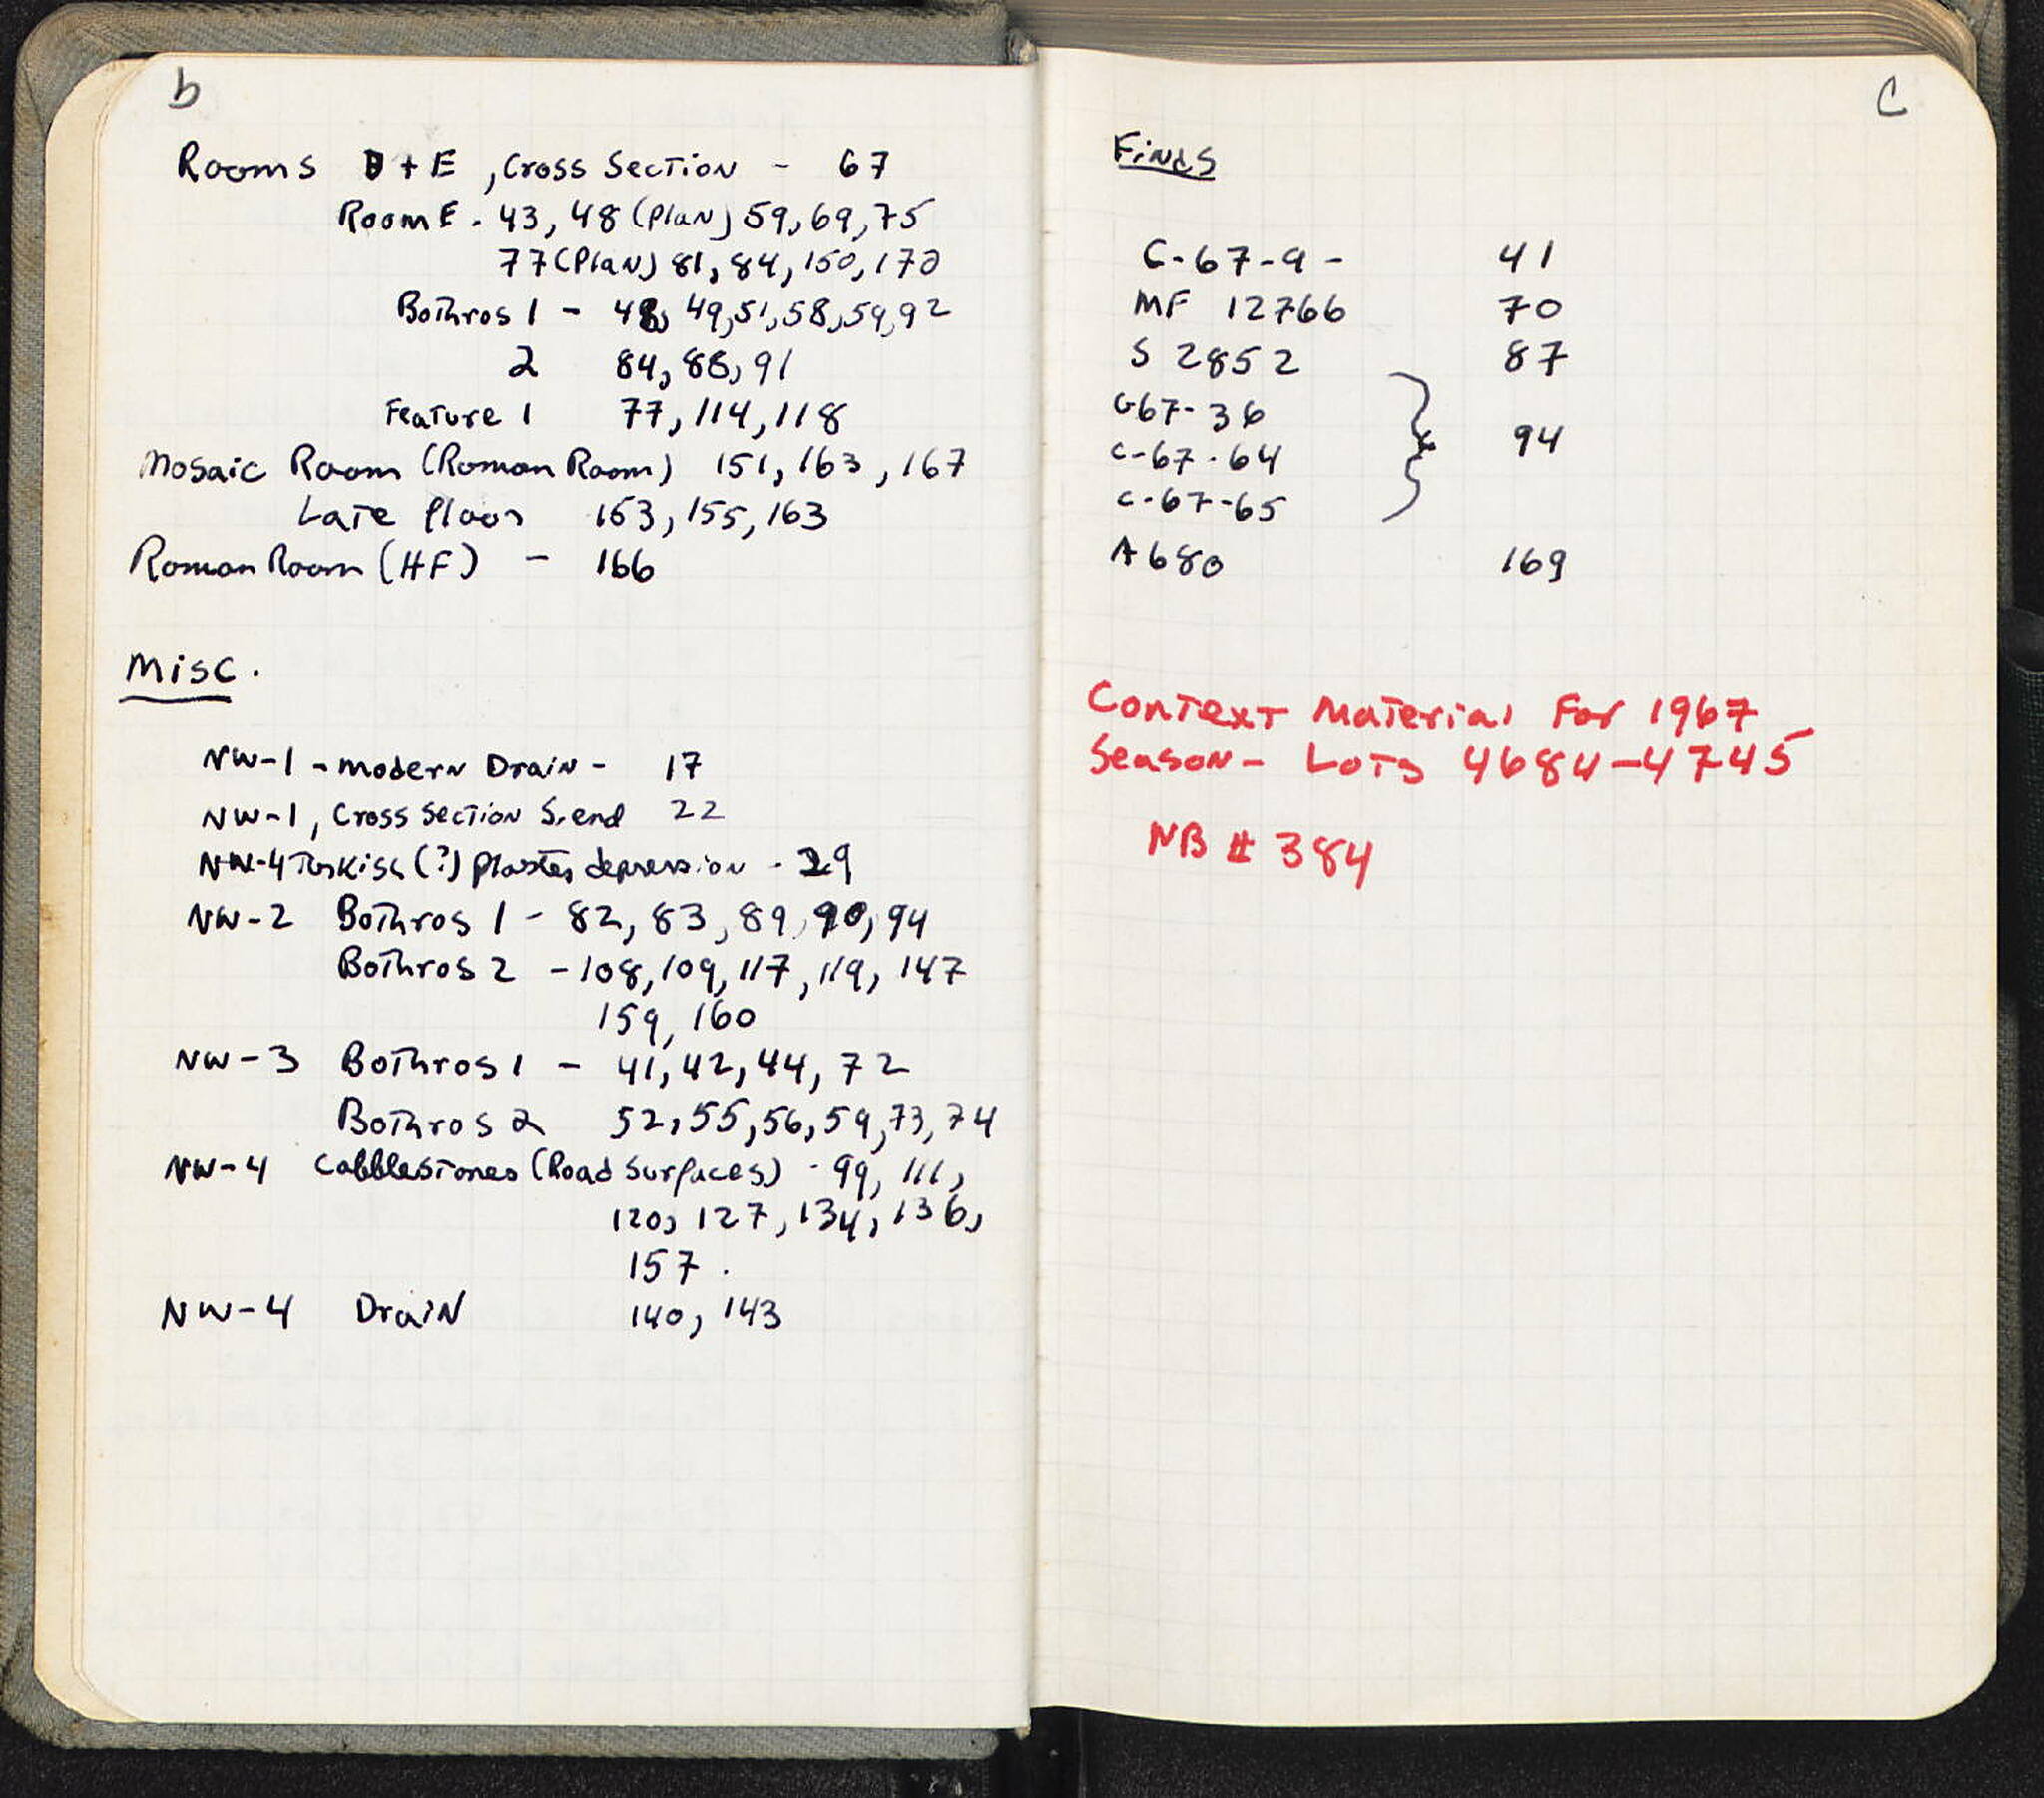 b
Rooms D + E, Cross Section - 67
Room E - 43, 48 (Plan) 59, 69, 75
77 (Plan) 81, 84, 150, 170
Bothros 1 - 48, 49, 51, 58, 59, 92
2 84, 88, 91
Feature 1 77, 114, 118
Mosaic Room (Roman Room) 151, 163, 167
Late floor 153, 155, 163
Roman Room (HF) - 166
Misc.
NW-1 - Modern Drain - 17
NW-1, Cross Section S. end 22
NW-4 Turkish (?) plaster depression - 29
NW-2 Bothros 1 - 82, 83, 89, 90, 94
Bothros 2 - 108, 109, 117, 119, 147
159, 160
NW-3 Bothros 1 - 41, 42, 44, 72
Bothros 2 52, 55, 56, 59, 73, 74
NW-4 Cobblestones (Road Surfaces) - 99, 111,
120, 127, 134, 136,
157.
NW-4 Drain 140, 143
C
Finds
C-67-9- 41
MF 12766 70
S 2852 87
C-67-36
C-67-64 94
C-67-65
A 680 169
Context Material For 1967
Season - Lots 4684-4745
NB # 384